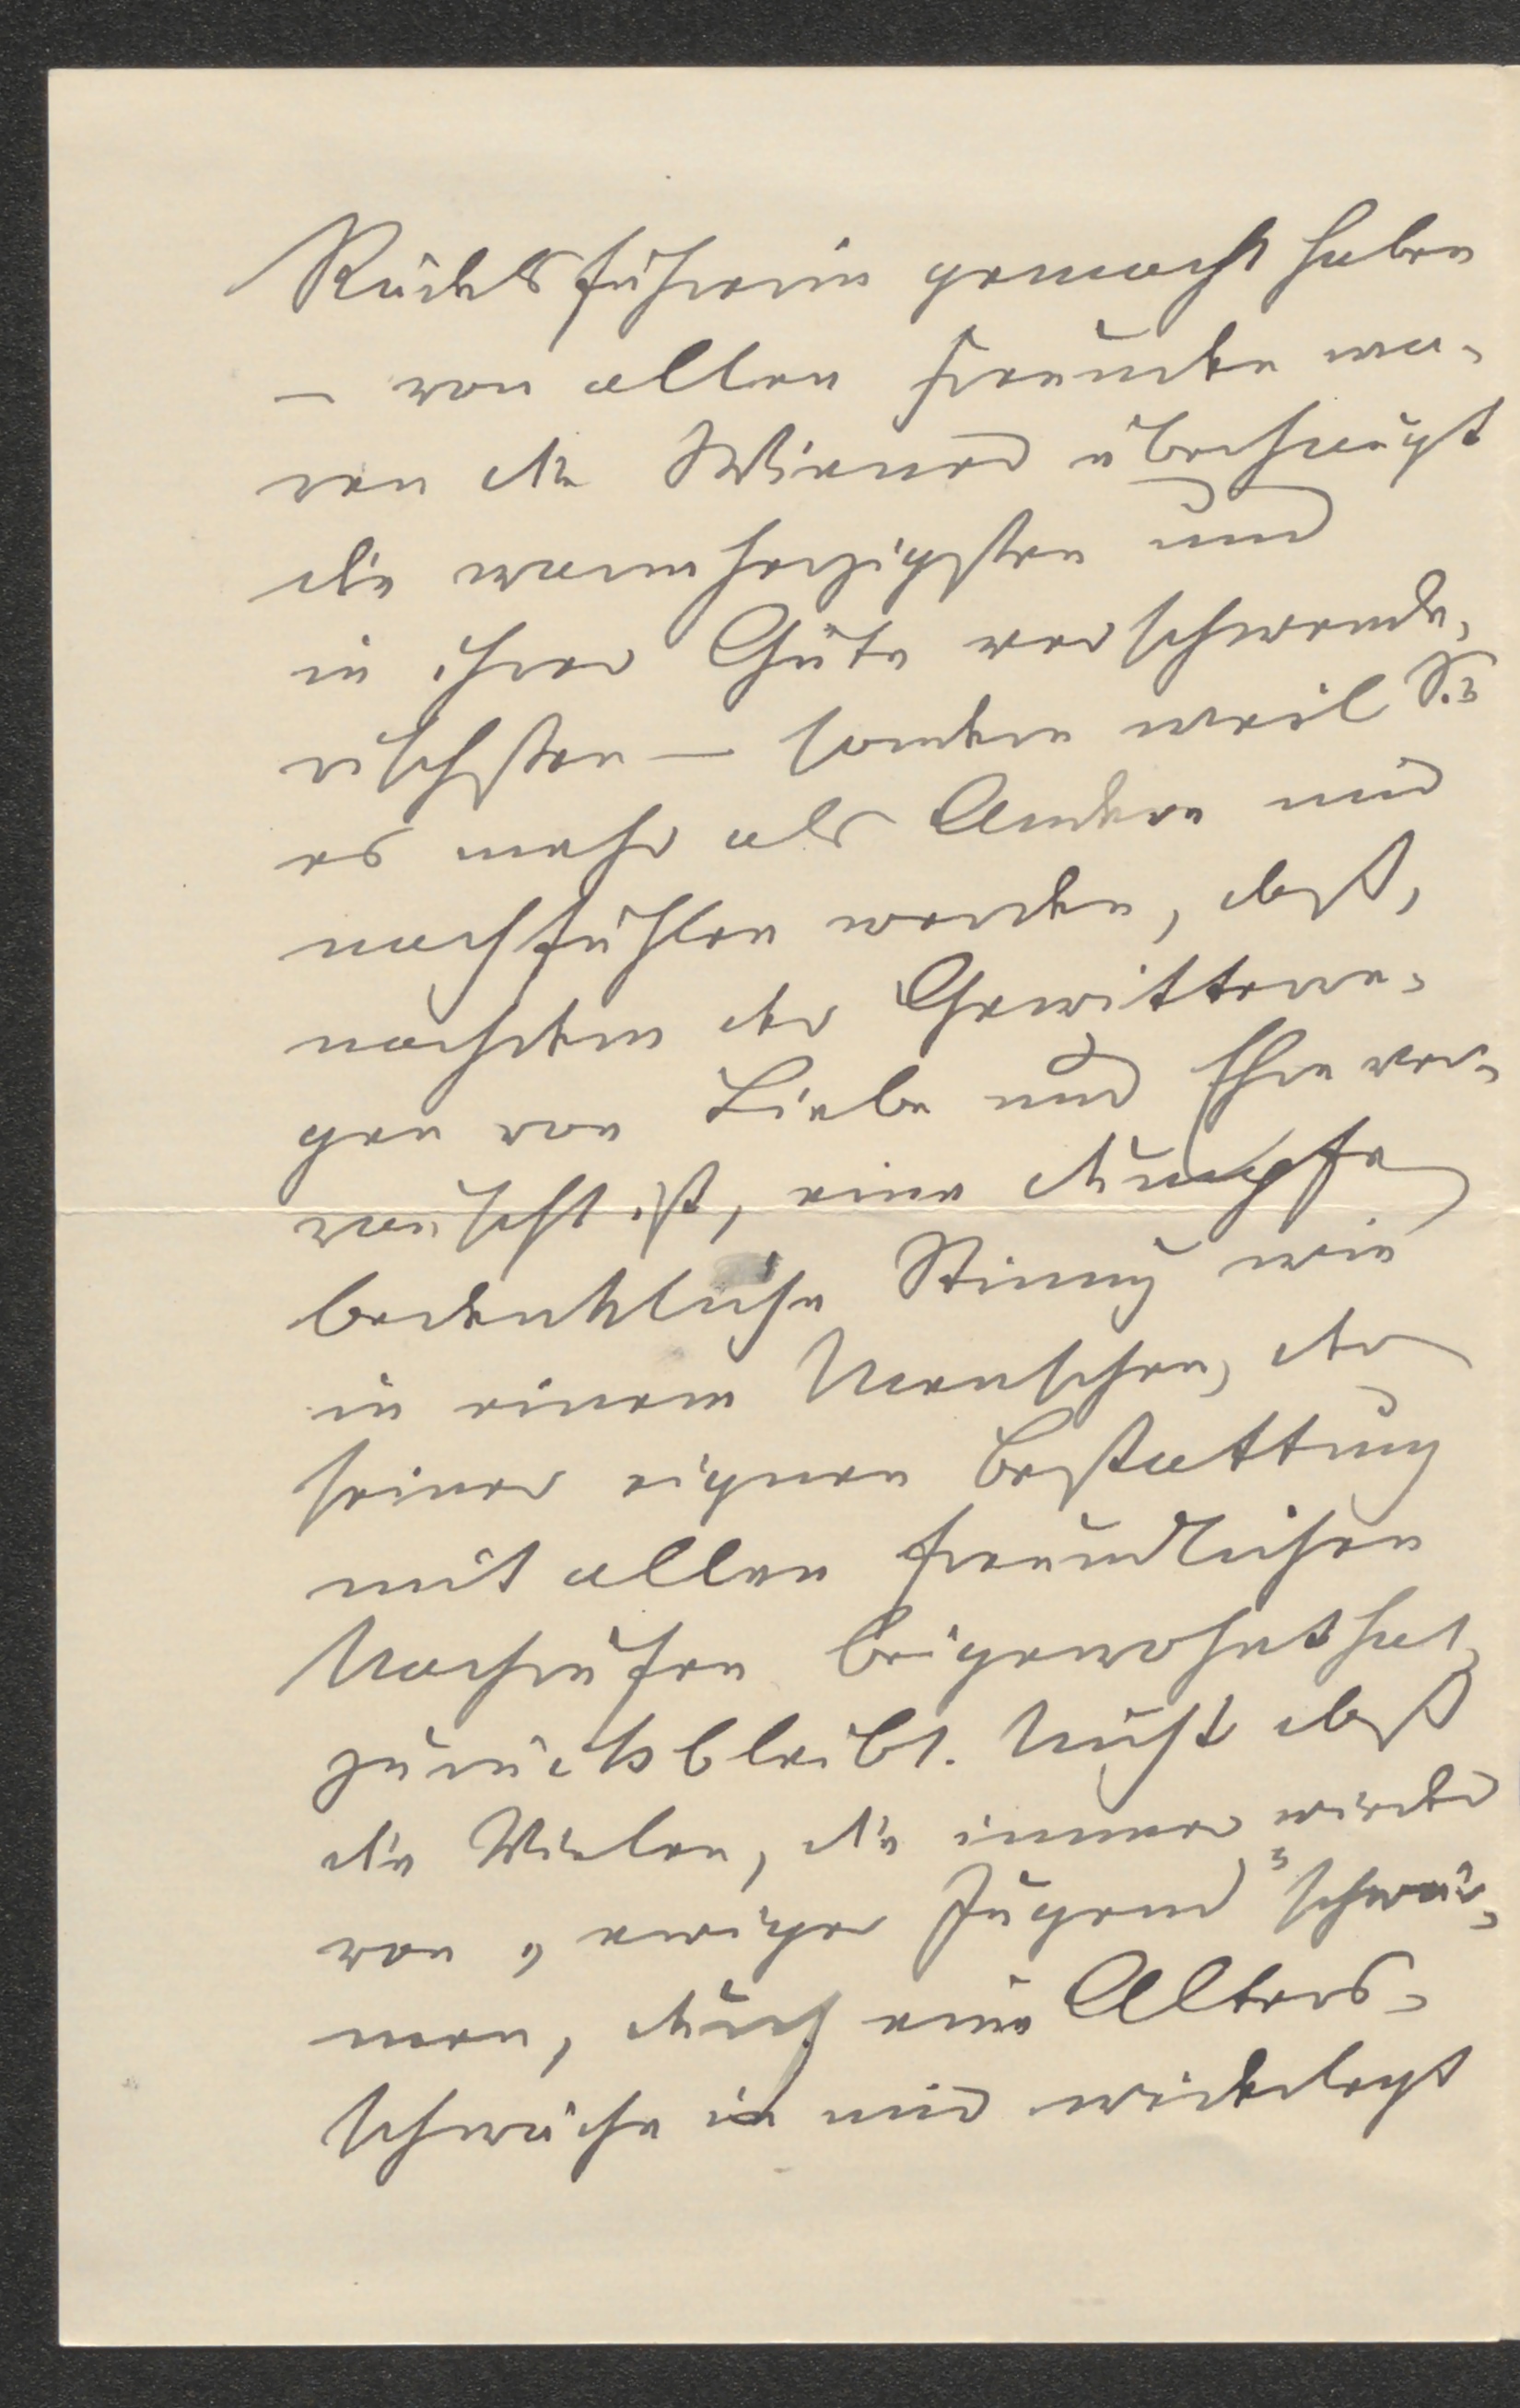 Rädelsführerin gemacht haben
– von allen Freunden wa-
ren die Wiener überhaupt
die warmherzigsten und
in ihrer Güte verschwende-
rischsten – sondern weil Sie
es mehr als Andere mir
nachfühlen werden, daß,
nachdem der Gewitterre-
gen von Liebe und Ehre ver-
rauscht ist, eine dumpfe
bedenkliche Stimmg wie
in einem Menschen, der
seiner eignen Bestattung
mit allen freundlichen
Nachrufen beigewohnt hat,
zurückbleibt. Nicht daß
die Vielen, die immer wieder
von „ewiger Jugend" schwär-
men, durch eine Alters-
schwäche in mir widerlegt